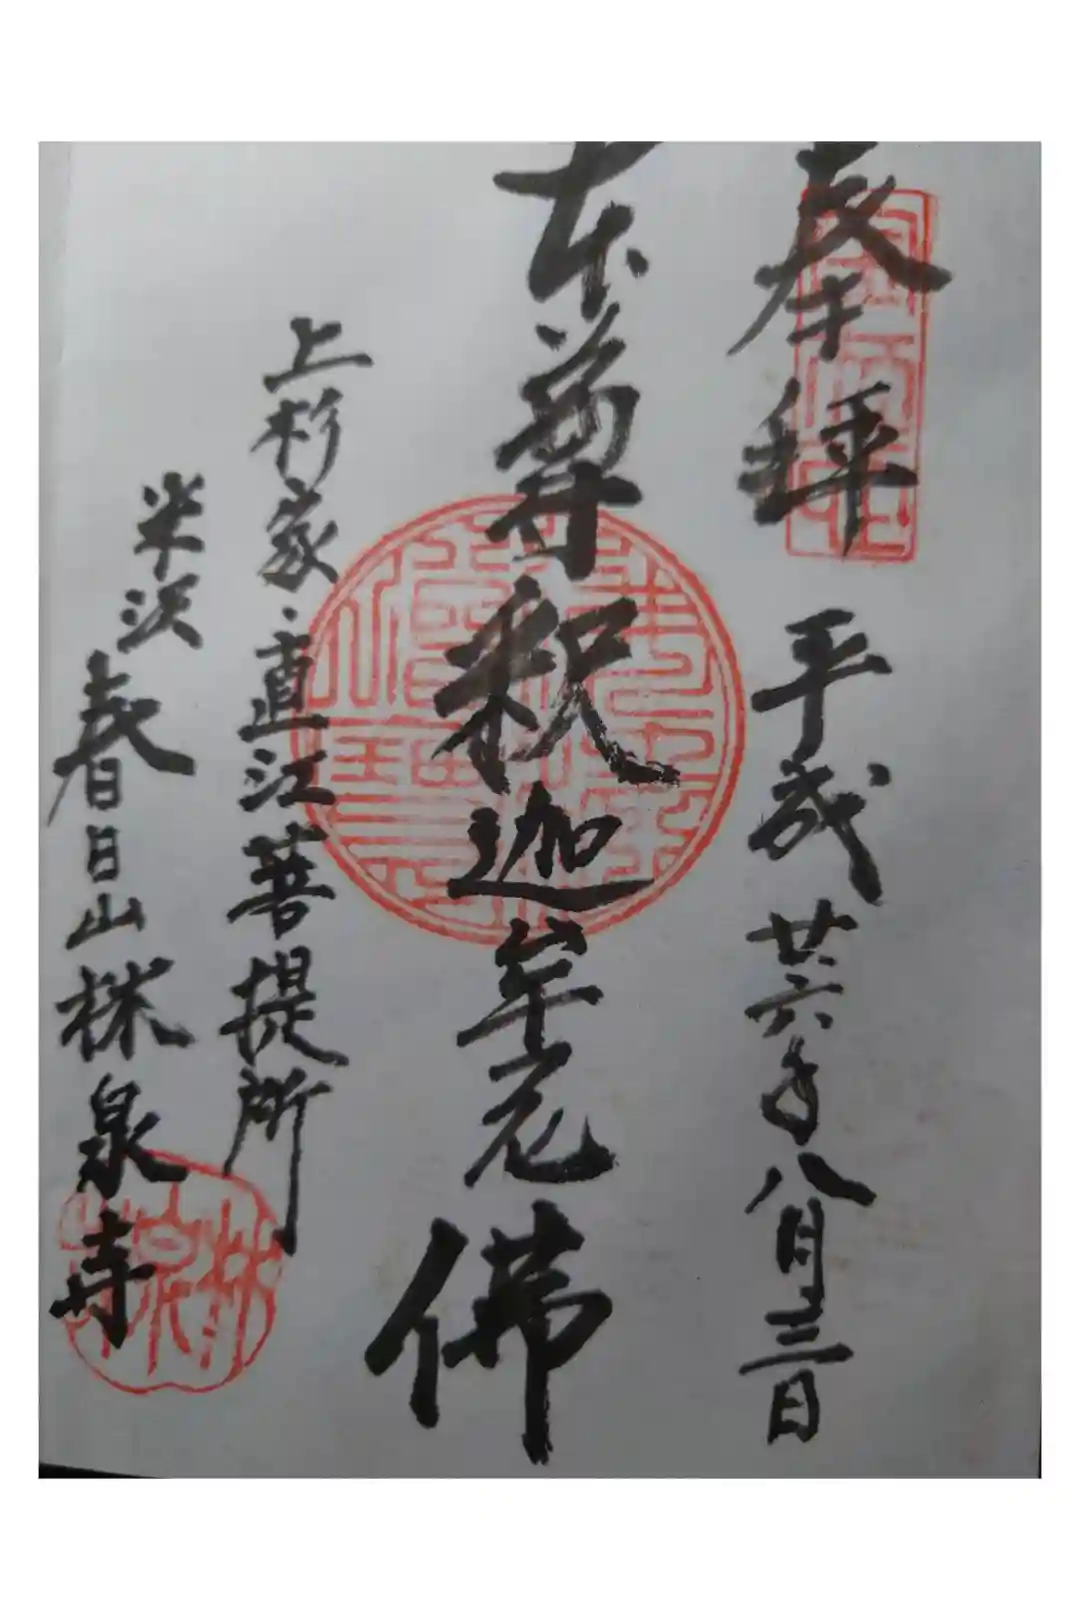 奉拝 平成廿六年八月三日
本尊釈迦牟尼佛
上杉家・直江菩提所
米沢 春日山林泉寺
林泉寺